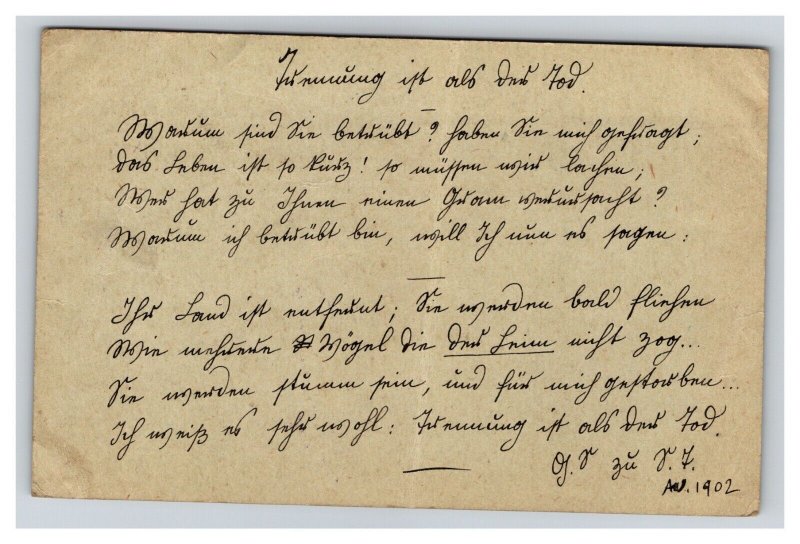 Trennung ist als der Tod.
Warum sind Sie betrübt? haben Sie mich gefragt;
das Leben ist so kurz! so müssen wir lachen;
Wer hat zu Ihnen einen Gram verursacht?
Warum ich betrübt bin, will Ich nun es sagen:
Ihr Land ist entfernt; Sie werden bald fliehen
Wie mehrere Vögel die der Leim nicht zog...
Sie werden stumm sein, und für mich gestorben...
Ich weiß es sehr wohl: Trennung ist als der Tod.
G. S zu S. T.
1902